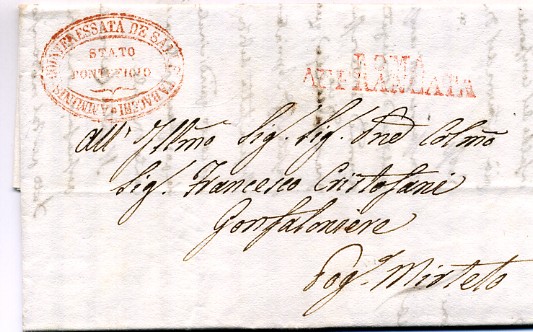 AMMINIS. COINTERESSATA DE SALI E TABACCHI
STATO
PONTIFICIO
ROMA
AFFRANCATA
All' Illmo Sig. Sig. Pne Colmo
Sig. Francesco Cristofani
Gonfaloniere
Pog. Mirteto